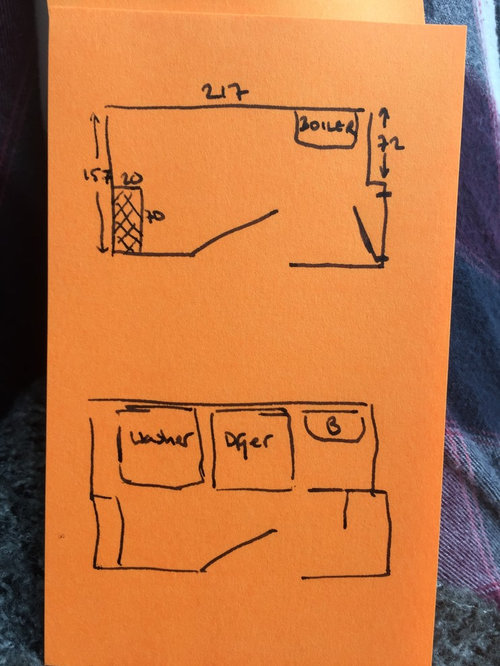 217
BOILER
72
157
20
70
Washer
Dryer
B